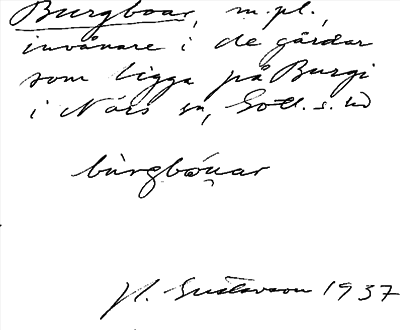 Burgboar, m.pl.,
invånare i de gårdar
som ligga på Burgi
i Närs sn, Gotl. s. hd
bùrgbóuar
H. Gustavson 1937